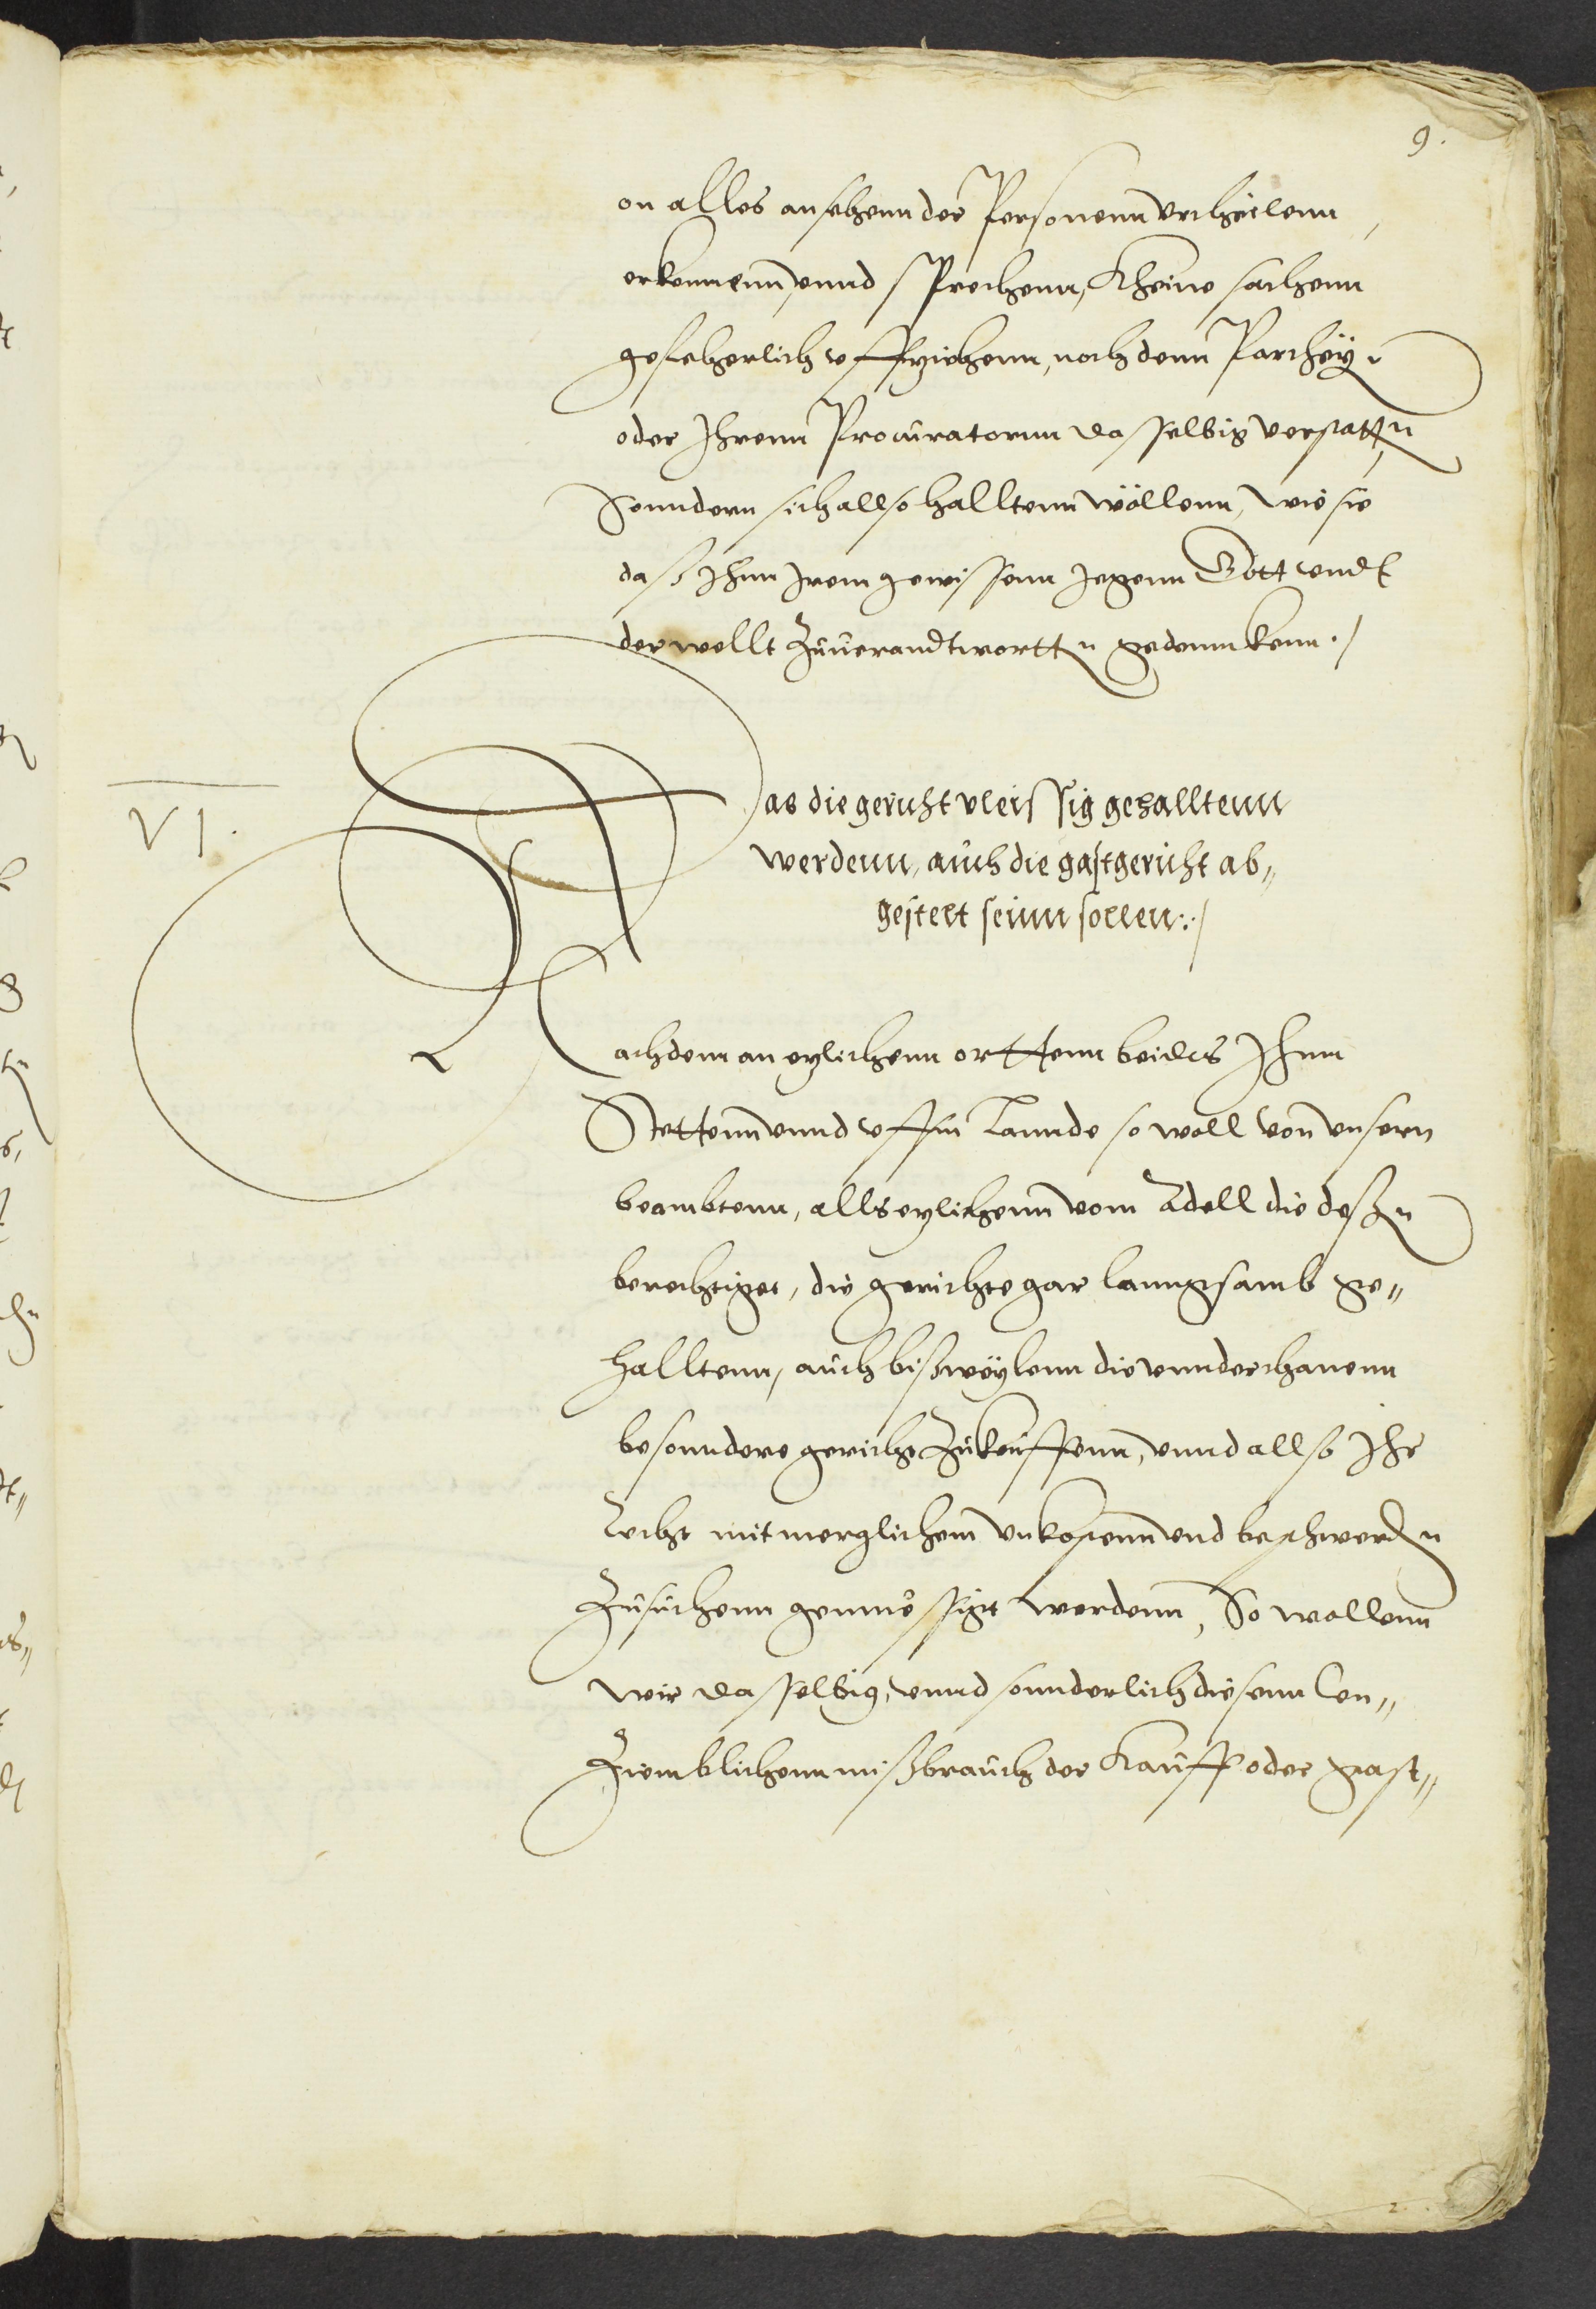 9.
on alles ansehenn der Personenn vrtheilenn,
erkennenn, vnnd sprechenn, Kheine sachenn
gefehrlich vffziehenn, noch denn Partheyen
oder Ihrenn Procuratornn dasselbig verstatten,
Sonndern sich allso halltenn wöllenn, wie sie
daß Ihnn Irem gewissenn Jegenn Gott vnd
der wellt Zuuerandtwortten gedennkenn ./
VI.
Das die gericht vleissig gehalltenn
werdenn, auch die gastgericht ab„
gestelt seinn sollen:./
Nachdem an etzlichenn orttenn beides Ihnn
Stettenn vnnd vffm Lannde so woll von vnsern
beambtenn, alls etzlichenn vom Adell die deßen
berechtiget, die gerichte gar lanngsamb ge„
halltenn, auch bißweylenn die vnnderthanenn
besonndere gericht Zukeuffenn, vnnd allso Ihr
Recht mit merglichem vnkostenn vnd beschwerden
Zusuchenn gennössigt werdenn, So wollenn
wir dasselbig, vnnd sonnderlich diesenn Vn„
Ziemblichenn mißbrauch der Kauff oder gast„